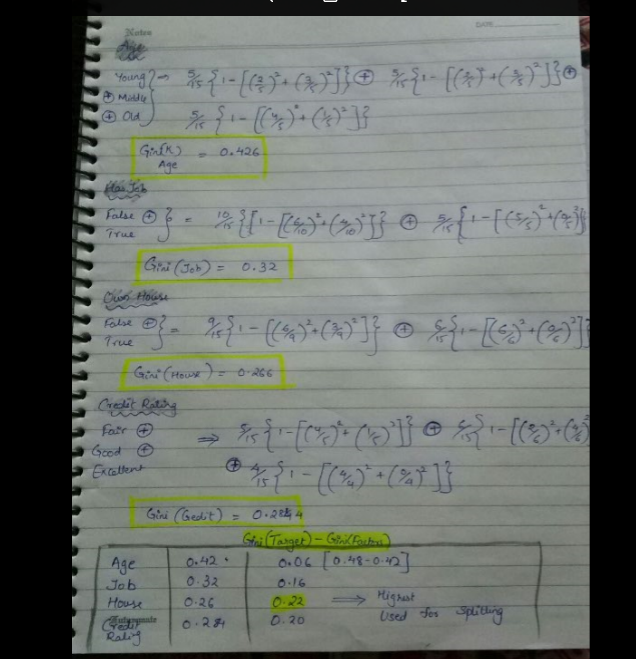 Notes
DATE
Age
Young } ⇒ 5/15 {1-[(2/5)²+(3/5)²]} ⊕ 5/15 {1-[(2/5)²+(3/5)²]} ⊕
⊕ Middle
⊕ Old } 5/15 {1-[(4/5)²+(1/5)²]}
Gini(K) = 0.426
Age
Has Job
False ⊕ } = 10/15 {[1-[(6/10)²+(4/10)²]} ⊕ 5/15 {1-[(5/5)²+(0/5)²]}
True
Gini (Job) = 0.32
Own House
False ⊕ } = 9/15 {1-[(6/9)²+(3/9)²]} ⊕ 6/15 {1-[(6/6)²+(0/6)²]}
True
Gini (House) = 0.266
Credit Rating
Fair ⊕ ⇒ 5/15 {1-[(4/5)²+(1/5)²]} ⊕ 6/15 {1-[(2/6)²+(4/6)²
Good ⊕
Excellent ⊕ 4/15 {1-[(4/4)²+(0/4)²]}
Gini (Credit) = 0.2844
Gini(Target) - Gini(Factors)
Age 0.42 0.06 [0.48-0.42]
Job 0.32 0.16
House 0.26 0.22 ⇒ Highest
Used for Splitting
Credit 0.28 0.20
Rating